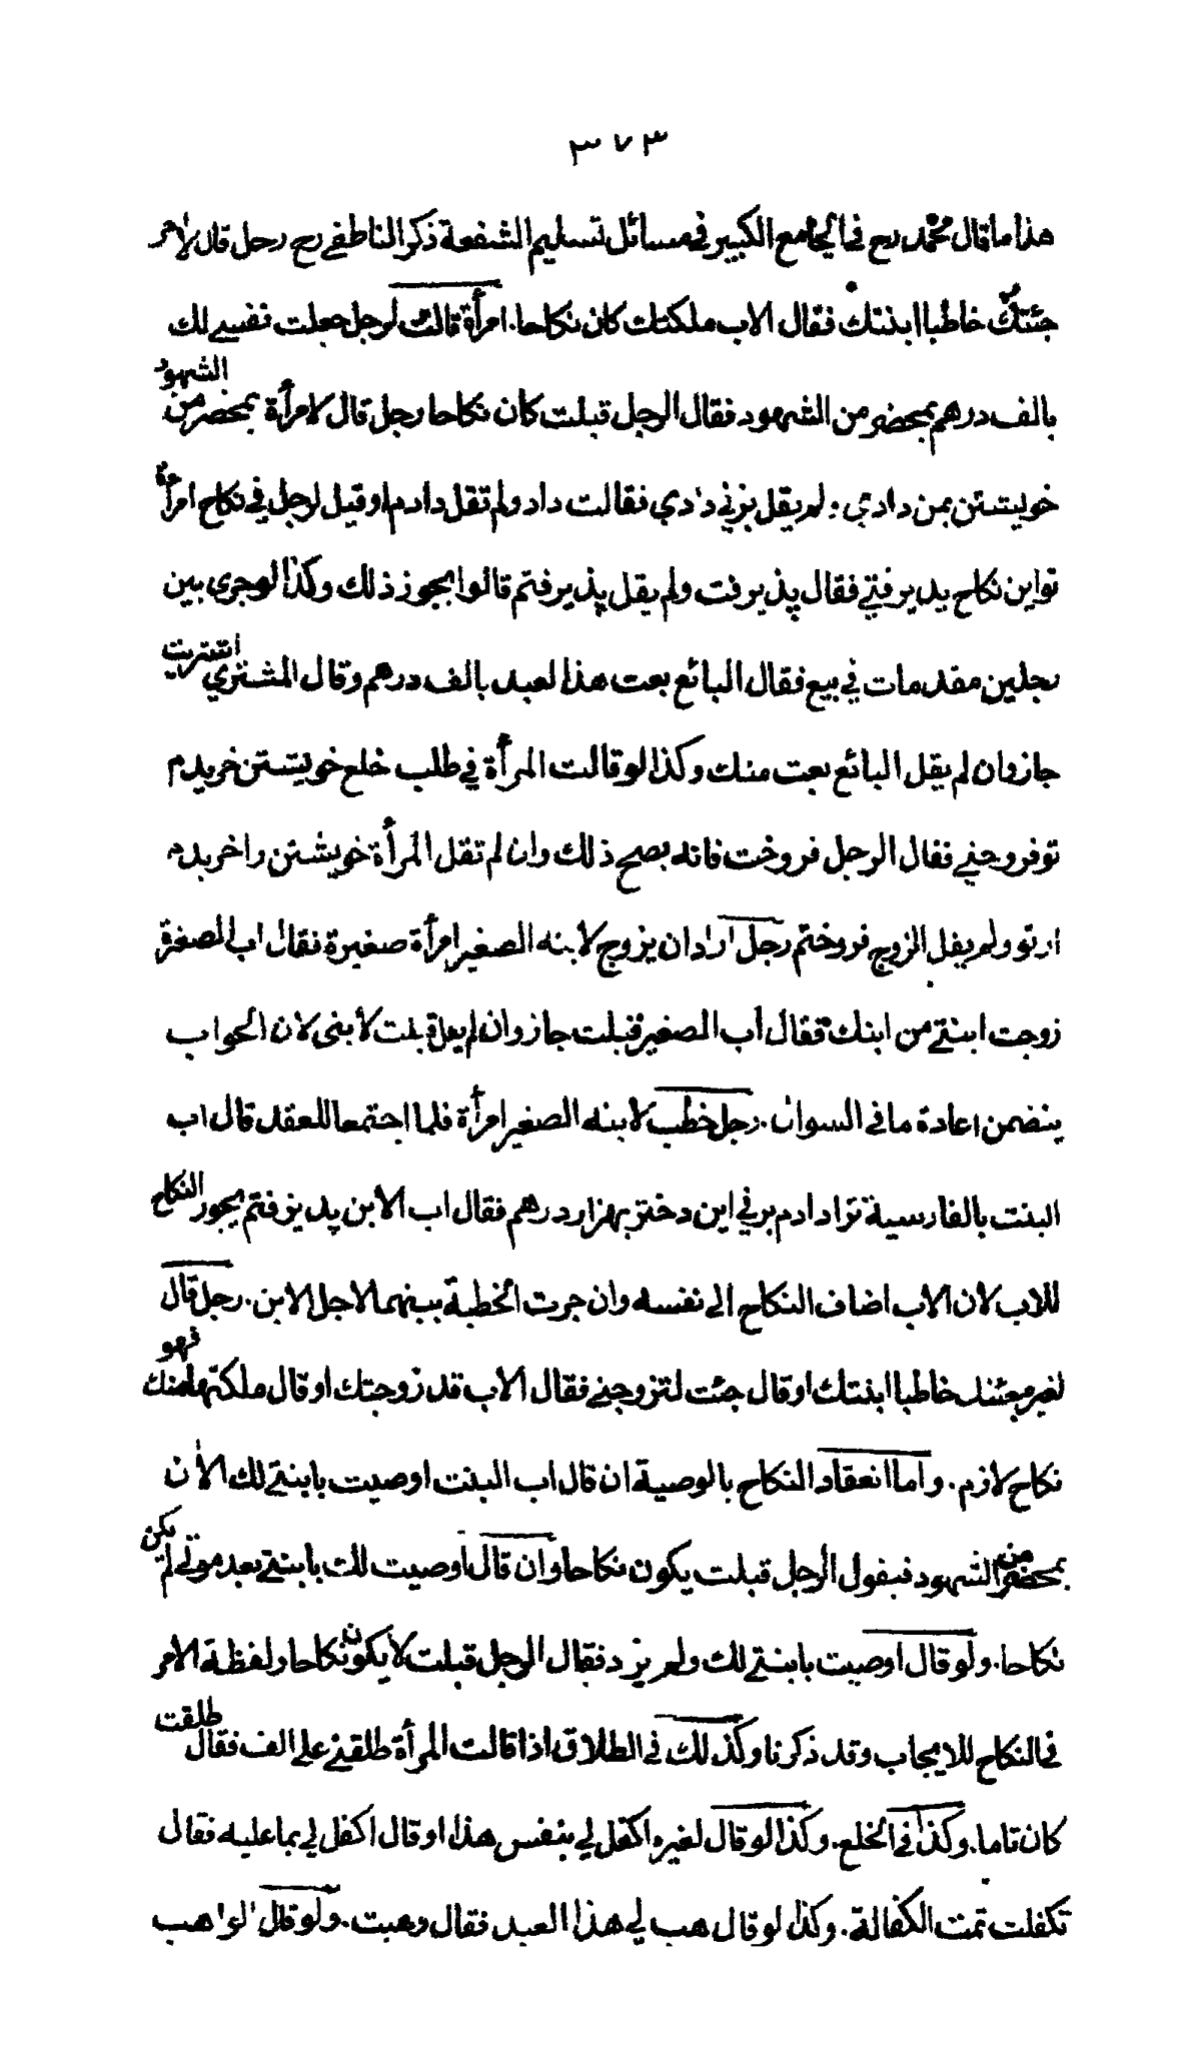 ٣٧٣
هذا ما قال محمد رح في الجامع الكبير في مسائل تسليم الشفعة ذكر الناطفي رح رجل قال لآخر
جئتك خاطبا ابنتك فقال الاب ملكتك كان نكاحا. امرأة قالت لرجل جعلت نفسي لك
بالف درهم بمحضر من الشهود فقال الرجل قبلت كان نكاحا رجل قال لامرأة بمحضر من الشهود
خويشتن بمن دادي ولم يقل بزني دادي فقالت داد ولم تقل دادم او قيل لرجل في نكاح امرأة
تو اين نكاح پديرفتي فقال پذيرفت ولم يقل پذيرفتم قالوا يجوز ذلك وكذا لو جرى بين
رجلين مقدمات في بيع فقال البائع بعت هذا العبد بالف درهم وقال المشتري اشتريت
جاز وان لم يقل البائع بعت منك وكذا لو قالت المرأة في طلب خلع خويشتن خريدم
تو فروختي فقال الرجل فروخت فانه يصح ذلك وان لم تقل المرأة خويشتن را خريدم
از تو ولم يقل الزوج فروختم رجل اراد ان يزوج لابنه الصغير امرأة صغيرة فقال اب الصغيرة
زوجت ابنتي من ابنك فقال أب الصغير قبلت جاز وان لم يقل قبلت لابنى لان الجواب
يتضمن اعادة ما في السوال. رجل خطب لابنه الصغير امرأة فلما اجتمعا للعقد قال اب
البنت بالفارسية ترا دادم بزني اين دختر بهزار درهم فقال اب الابن پديرفتم يجوز النكاح
للاب لان الاب اضاف النكاح الى نفسه وان جرت الخطبة بينهما لاجل الابن. رجل قال
لغيره جئتك خاطبا ابنتك او قال جئت لتزوجني فقال الاب قد زوجتك او قال ملكتها منك فهو
نكاح لازم. واما انعقاد النكاح بالوصية ان قال اب البنت اوصيت بابنتي لك الآن
بمحضر من الشهود فيقول الرجل قبلت يكون نكاحا وان قال اوصيت لك بابنتي بعد موتي لم يكن
نكاحا. ولو قال اوصيت بابنتي لك ولم يزد فقال الرجل قبلت لا يكون نكاحا ولفظة الامر
في النكاح للايجاب وقد ذكرنا وكذلك في الطلاق اذا قالت المرأة طلقني على الف فقال طلقت
كان تاما. وكذا في الخلع. وكذا لو قال لغيره اكفل لي بنفس هذا او قال اكفل لي بما عليه فقال
تكفلت تمت الكفالة. وكذا لو قال هب لي هذا العبد فقال وهبت. ولو قال الواهب